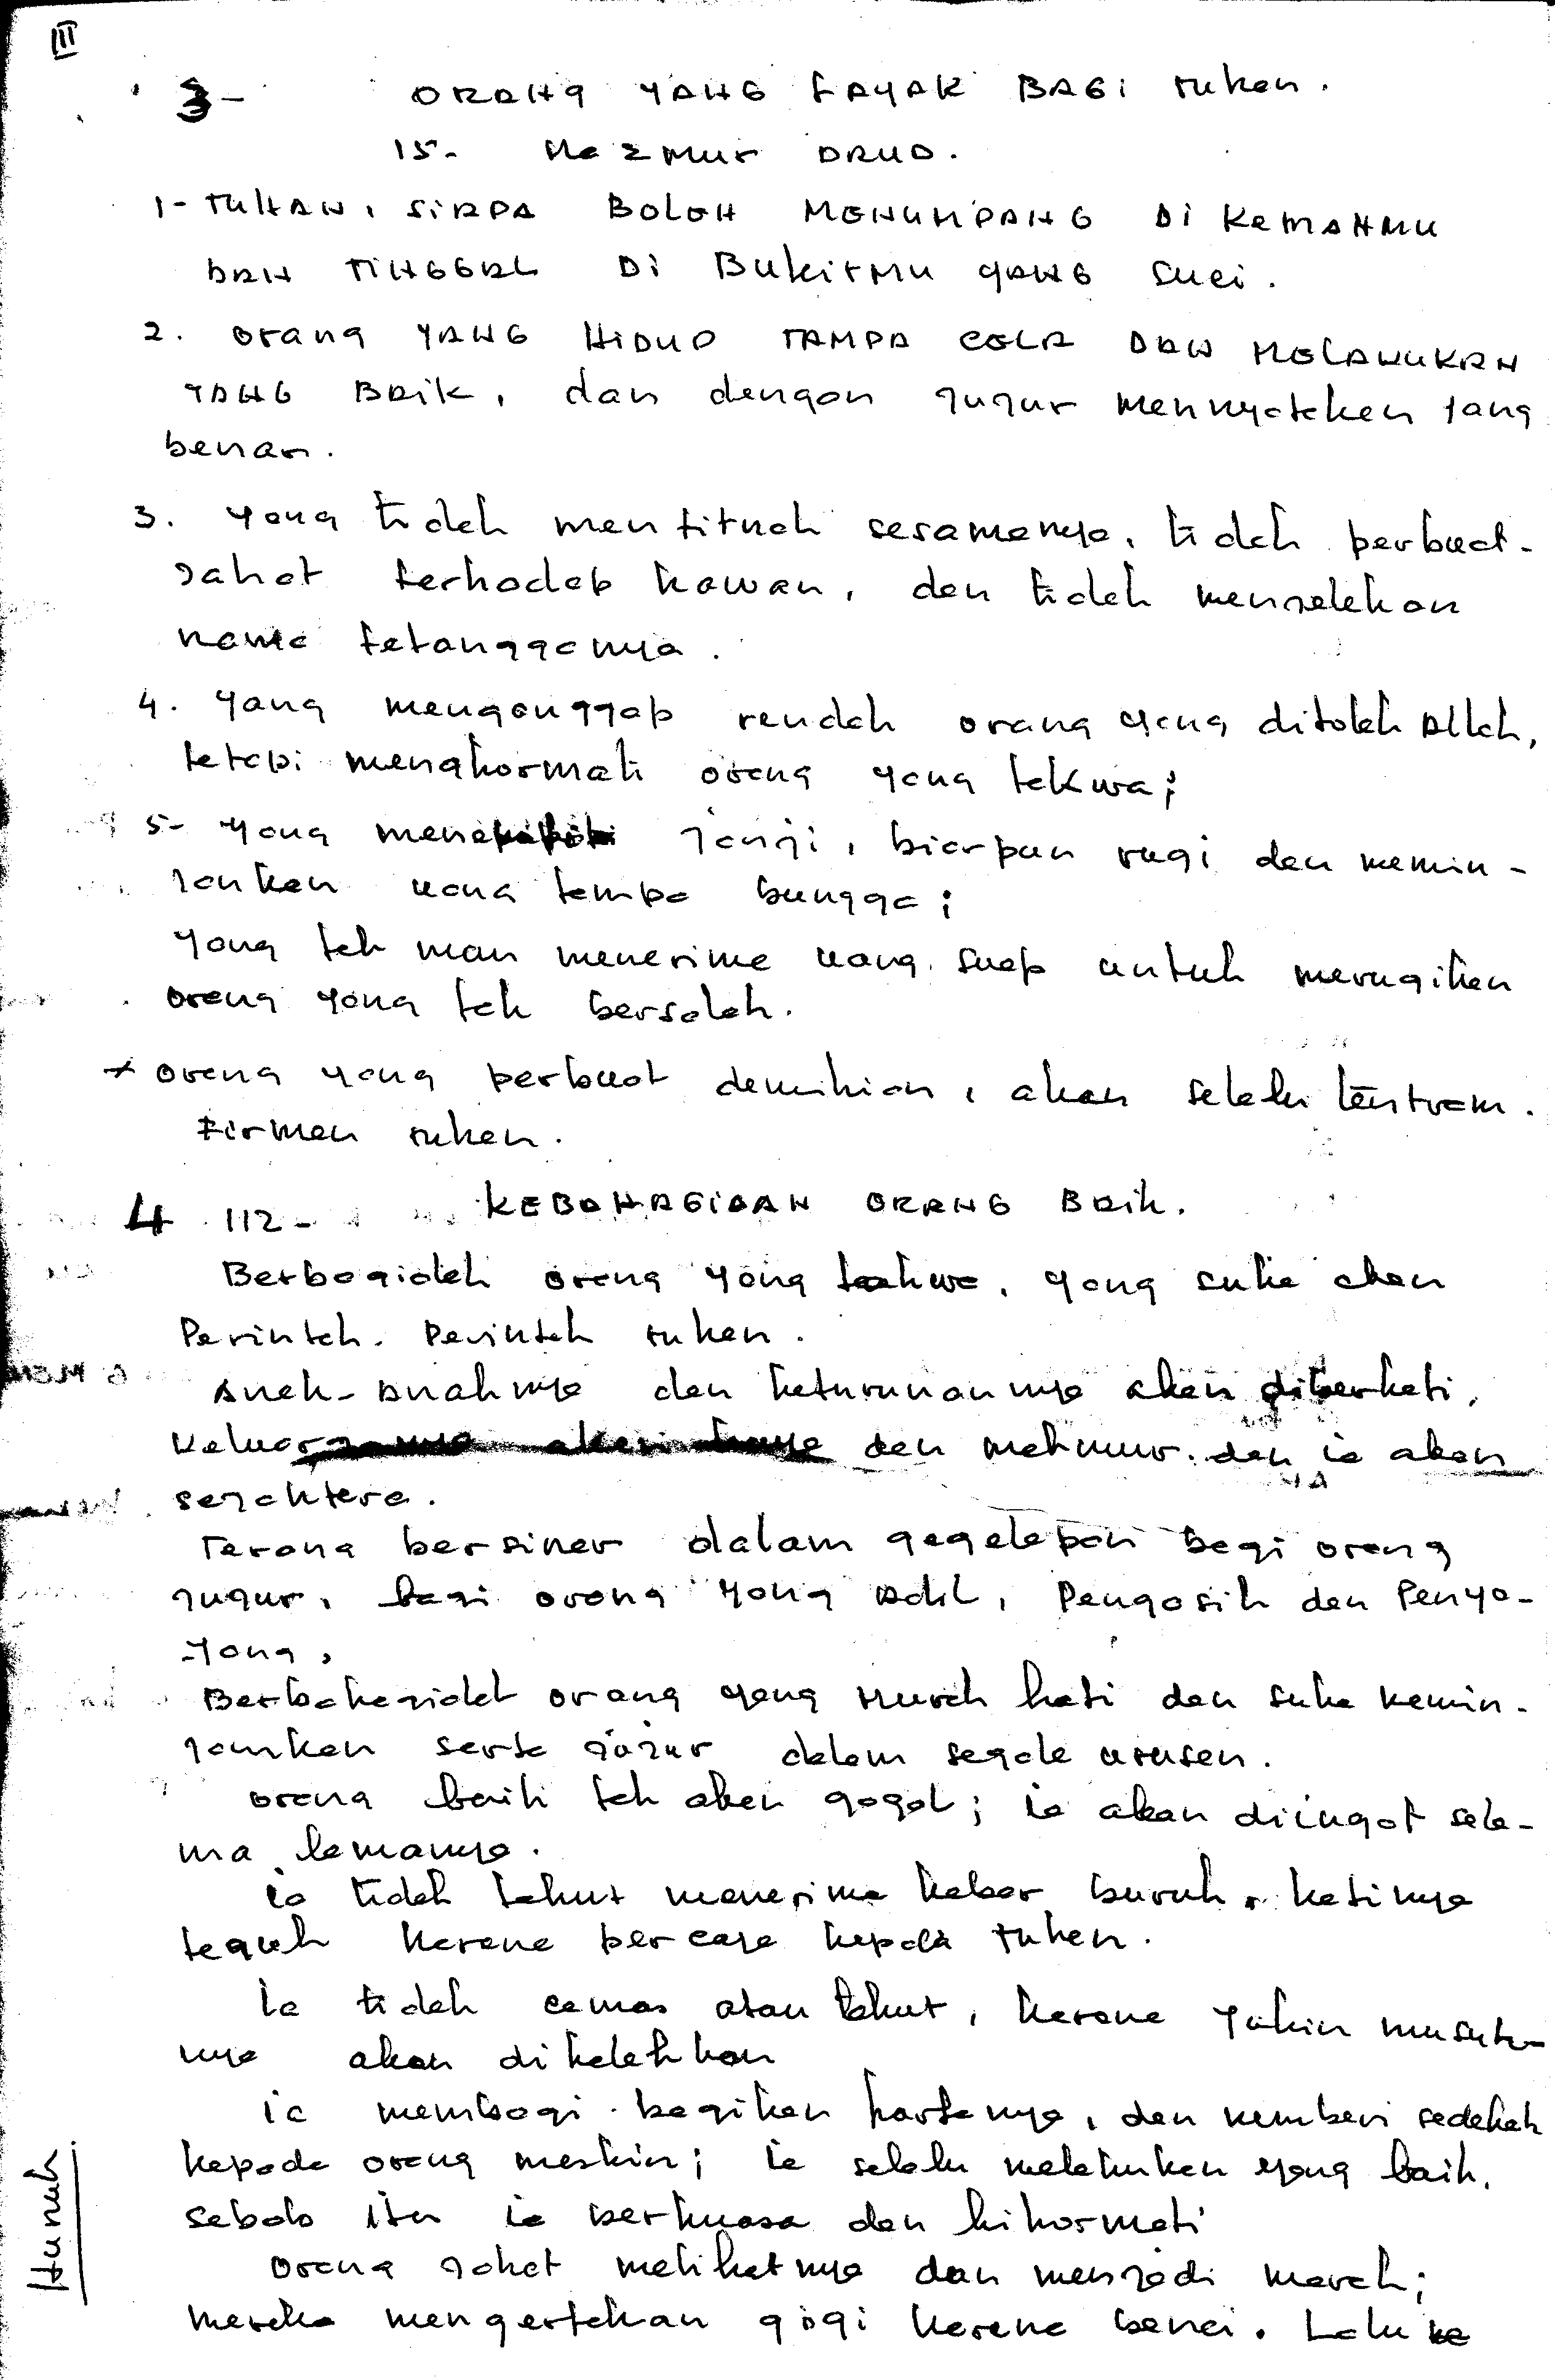 III
3- ORANG YANG LAYAK BAGI Tuhan.
15- Mazmur DAUD.
1- TUHAN, SIAPA BOLEH MENUMPANG DI KEMAHMU
DAN TINGGAL DI BukitMu YANG Suci.
2. Orang YANG HIDUP TAMPA CELA DAN MELAKUKAN
YANG BAIK, dan dengan jujur mennyatakan yang
benar.
3. Yang tidak menfitnah sesamanya, tidak berbuat-
jahat terhadap kawan, dan tidak menjelekan
nama tetangganya.
4. Yang menganggap rendah orang yang ditolak Allah,
tetapi menghormati orang yang takwa;
5- Yang janji, biarpun rugi dan memin-
jankan uang tampa bungga;
Yang tak mau menerima uang suap untuk merugikan
orang yang tak bersalah.
* Orang yang berbuat demikian, akan selalu tentram.
Firman Tuhan.
4 112- KEBAHAGIAAN ORANG Baik.
Berbagialah orang yang takwa, yang suka akan
Perintah-Perintah Tuhan.
Anak-anaknya dan keturunannya akan diberkati.
Keluarganya akan kaya dan makmur. dan ia akan
sejahtera.
Terang bersinar dalam gegelapan bagi orang
jujur, bagi orang yang Adil, Pengasih dan Penya-
-yang,
Berbahagialah orang yang Murah hati dan suka memin-
jamkan serta jujur dalam segala urusan.
Orang baik tak akan gagal; ia akan diingat sela-
ma lamanya.
ia tidak takut menerima kabar buruk, hatinya
teguh karena percaya kepada Tuhan.
Ia tidak cemas atau takut, karena yakin musuh-
nya akan dikalahkan
ia membagi-bagikan hartanya, dan memberi sedekah
kepada orang meskin; ia selalu melakukan yang baik.
Sebab itu ia berkuasa dan dihormati
Orang jahat melihatnya dan menjadi marah;
mereka mengertakan gigi karena benci. Lalu
Hunuk